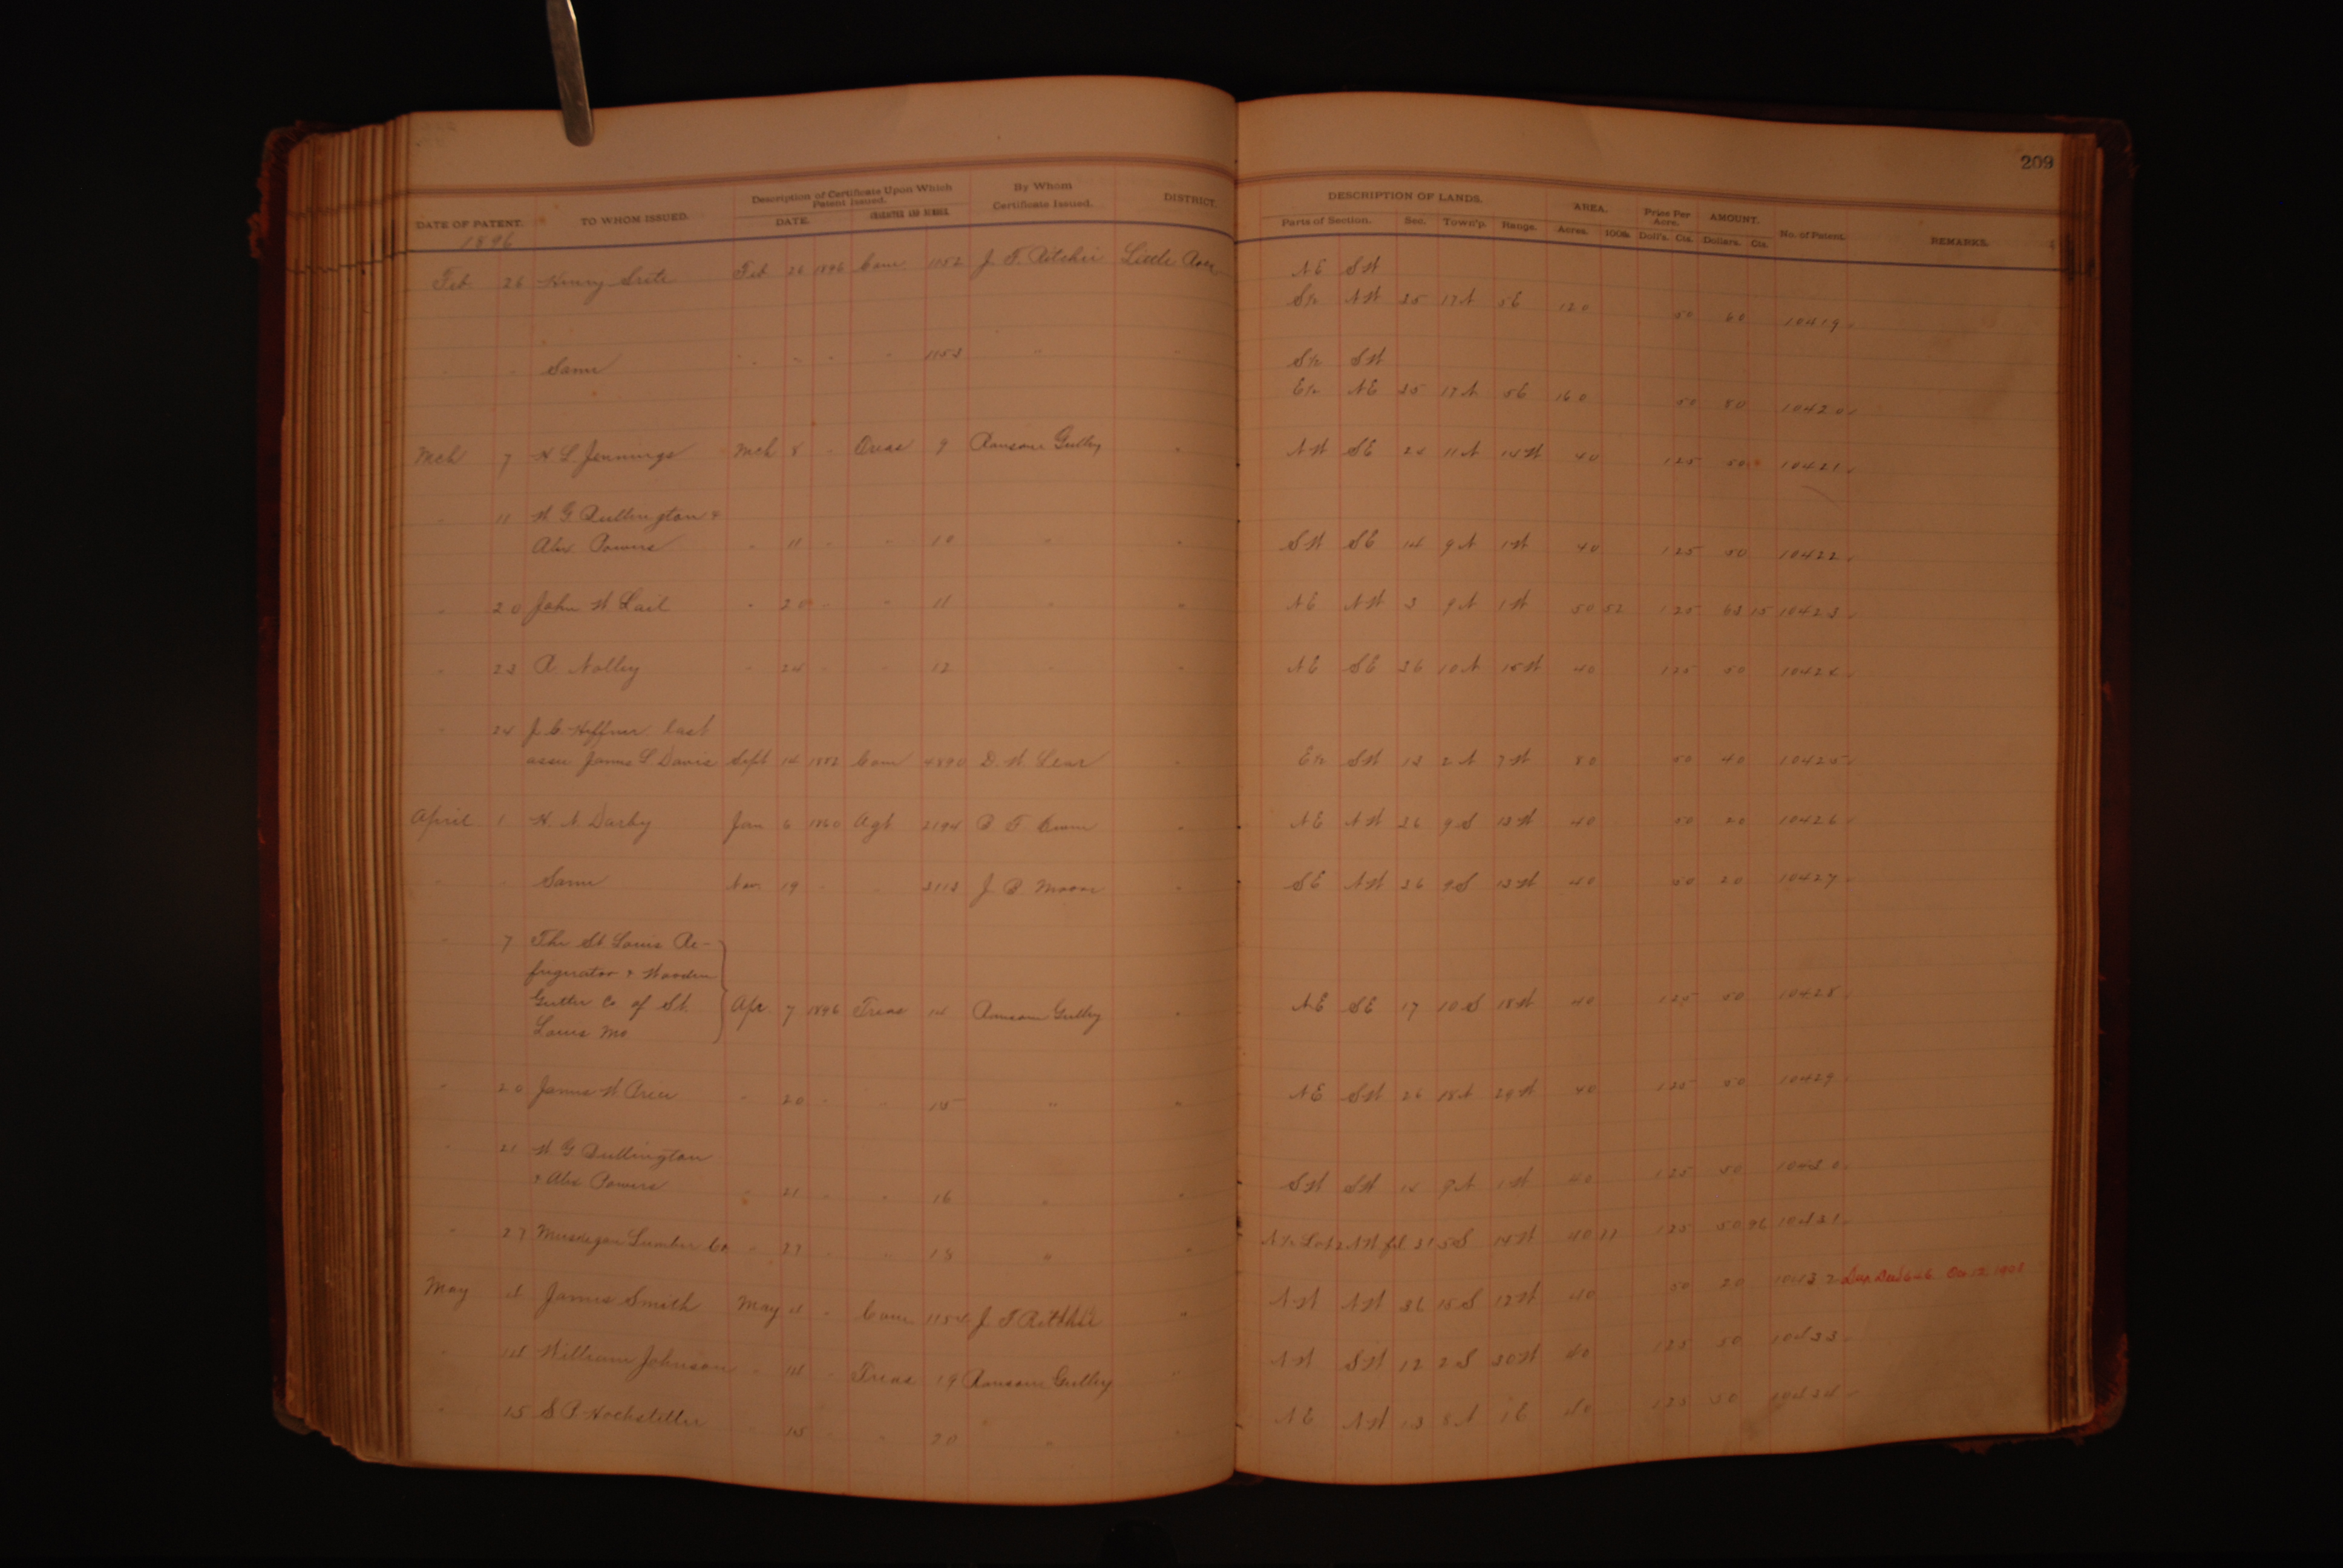 209
DATE OF PATENT. TO WHOM ISSUED. Description of Certificate Upon Which Patent Issued. DATE. CHARACTER AND NUMBER. By Whom Certificate Issued. DISTRICT. DESCRIPTION OF LANDS. Parts of Section. Sec. Town'p. Range. AREA. Acres. 100ths Price Per Acre. Doll's. Cts. AMOUNT. Dollars. Cts. No. of Patent. REMARKS.
1896
Feb 26 Henry Feb 26 1896 Com 1152 J. F. Ritchie Little Rock NE SW
S½ NW 35 17N 5E 120 50 60 10419
" " Same " " " " 1153 " " S½ SW
E½ NE 35 17N 5E 160 50 80 10420
Mch 7 H L Jennings Mch 8 " Treas 9 Ransom Gulley " NW SE 24 11N 14W 40 1 25 50 10421
" 11 W G Bullington &
Alex Powers " 11 " " 10 " " SW SE 14 9N 1W 40 1 25 50 10422
" 20 John W Lail " 20 " " 11 " " NE NW 3 9N 1W 50 52 1 25 63 15 10423
" 23 R Nolley " 24 " " 12 " " NE SE 36 10N 15W 40 1 25 50 10424
" 24 J. C. Heffner last
assee James L Davis Sept 14 1882 Com 4890 D. W. Lear " E½ SW 13 2N 7W 80 50 40 10425
April 1 H. N. Darby Jan 6 1860 Agt 2194 " NE NW 36 9S 13W 40 50 20 10426
" " Same Nov 19 " " 3113 J. B. Moore " SE NW 36 9S 13W 40 50 20 10427
" 7 The St. Louis Re-
frigerator & Wooden
Gutter Co of St. Apr 7 1896 Treas 14 Ransom Gulley " NE SE 17 10S 18W 40 1 25 50 10428
Louis Mo
" 20 James W. " 20 " " 15 " " NE SW 26 18N 29W 40 1 25 50 10429
" 21 W G Bullington
& Alex Powers " 21 " " 16 " " SW SW 14 9N 1W 40 1 25 50 10430
" 27 Muskegon Lumber Co " 27 " " 18 " " N½ Lot 2 NW frl 31 5S 14W 40 77 1 25 50 96 10431
May 4 James Smith May 4 " Com 1154 J F Ritchie " NW NW 36 15S 12W 40 50 20 10432 Dup. Oct 12, 1901
" 14 William Johnson " 14 " Treas 19 Ransom Gulley " NW SW 12 2S 30W 40 1 25 50 10433
" 15 S P Hochstetler " 15 " " 20 " " NE NW 13 8N 1E 40 1 25 50 10434